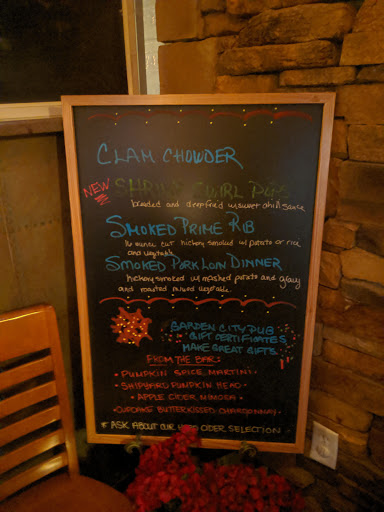 CLAM CHOWDER
NEW SHRIMP SWIRL POPS
breaded and deep fried w/ sweet chili sauce
SMOKED PRIME RIB
16 ounce cut hickory smoked w/ potato or rice
and vegetable
SMOKED PORK LOIN DINNER
hickory smoked w/ mashed potato and gravy
and roasted mixed vegetable
GARDEN CITY PUB
GIFT CERTIFICATES
MAKE GREAT GIFTS
FROM THE BAR:
• PUMPKIN SPICE MARTINI •
• SHIPYARD PUMPKIN HEAD •
• APPLE CIDER MIMOSA •
BUTTER KISSED CHARDONNAY •
* ASK ABOUT OUR HARD CIDER SELECTION